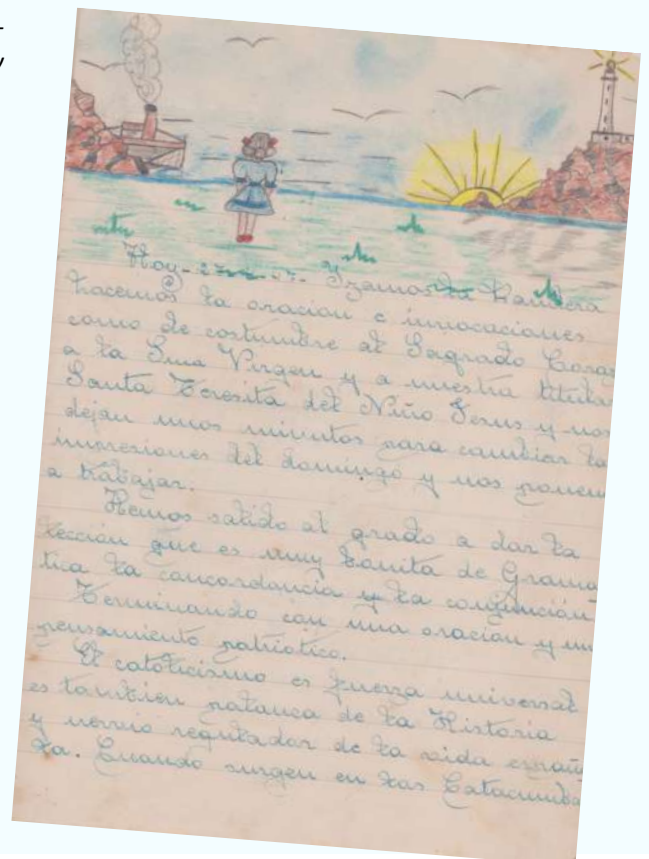 Hoy - 27 - Izamos la bandera
hacemos la oracion e invocaciones
como de costumbre al Sagrado Coraz
a la Sma Virgen y a nuestra titular
Santa Teresita del Niño Jesus y nos
dejan unos minutos para cambiar la
impresiones del domingo y nos ponem
a trabajar.
Hemos salido al grado a dar la
lección que es muy bonita de Grama
tica la concordancia y la conjunción
Terminando con una oracion y un
pensamiento patriotico.
El catolicismo es fuerza universal
es tambien palanca de la Historia
y nervio regulador de la vida españ
la. Cuando surgen en las Catacumba